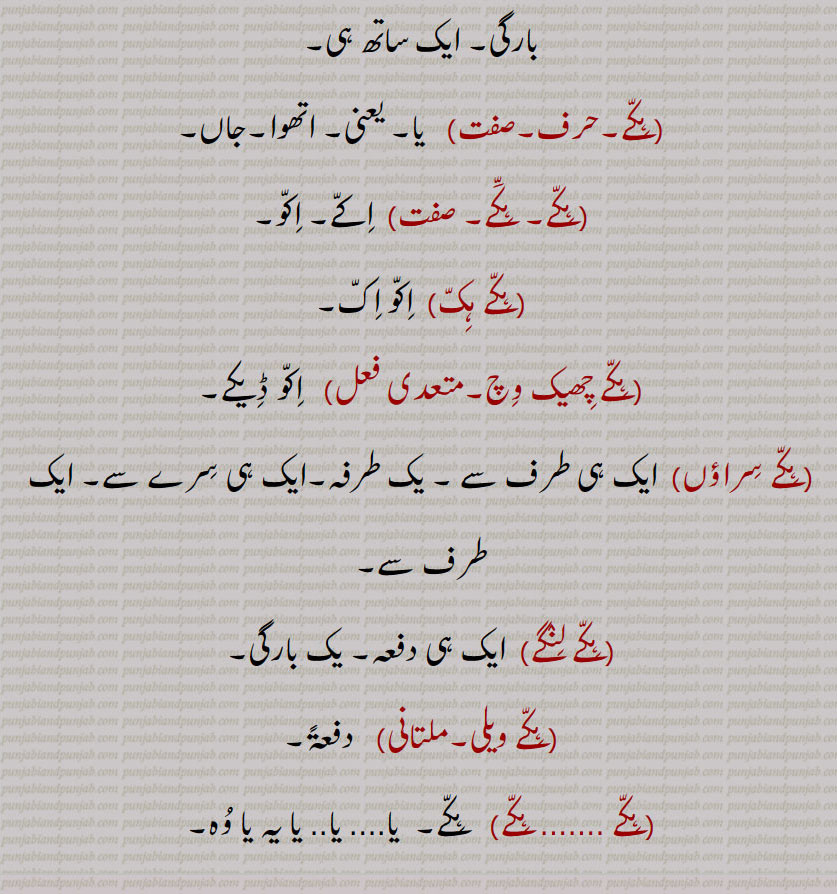 بارگی۔ ایک ساتھ ہی۔
(ہِکّے۔حرف۔صفت) یا۔ یعنی۔ اتھوا۔جاں۔
(ہِکّے۔ ہِکِّے۔ صفت) اِکےّ۔ اِکوّ۔
(ہِکّے ہِکّ) اِکوّ اِکّ۔
(ہِکّے چِھیک وِچ۔متعدی فعل) اِکوّ ڈِیکے۔
(ہِکّے سِراؤں) ایک ہی طرف سے ۔ یک طرفہ۔ایک ہی سِرے سے۔ ایک
طرف سے۔
(ہِکّے لِنگّے) ایک ہی دفعہ۔ یک بارگی۔
(ہِکّے ویلی۔ملتانی) دفعۃً۔
(ہِکّے .......ہِکّے) ہِکّے۔ یا.... یا.. یا یہ یا وُہ۔